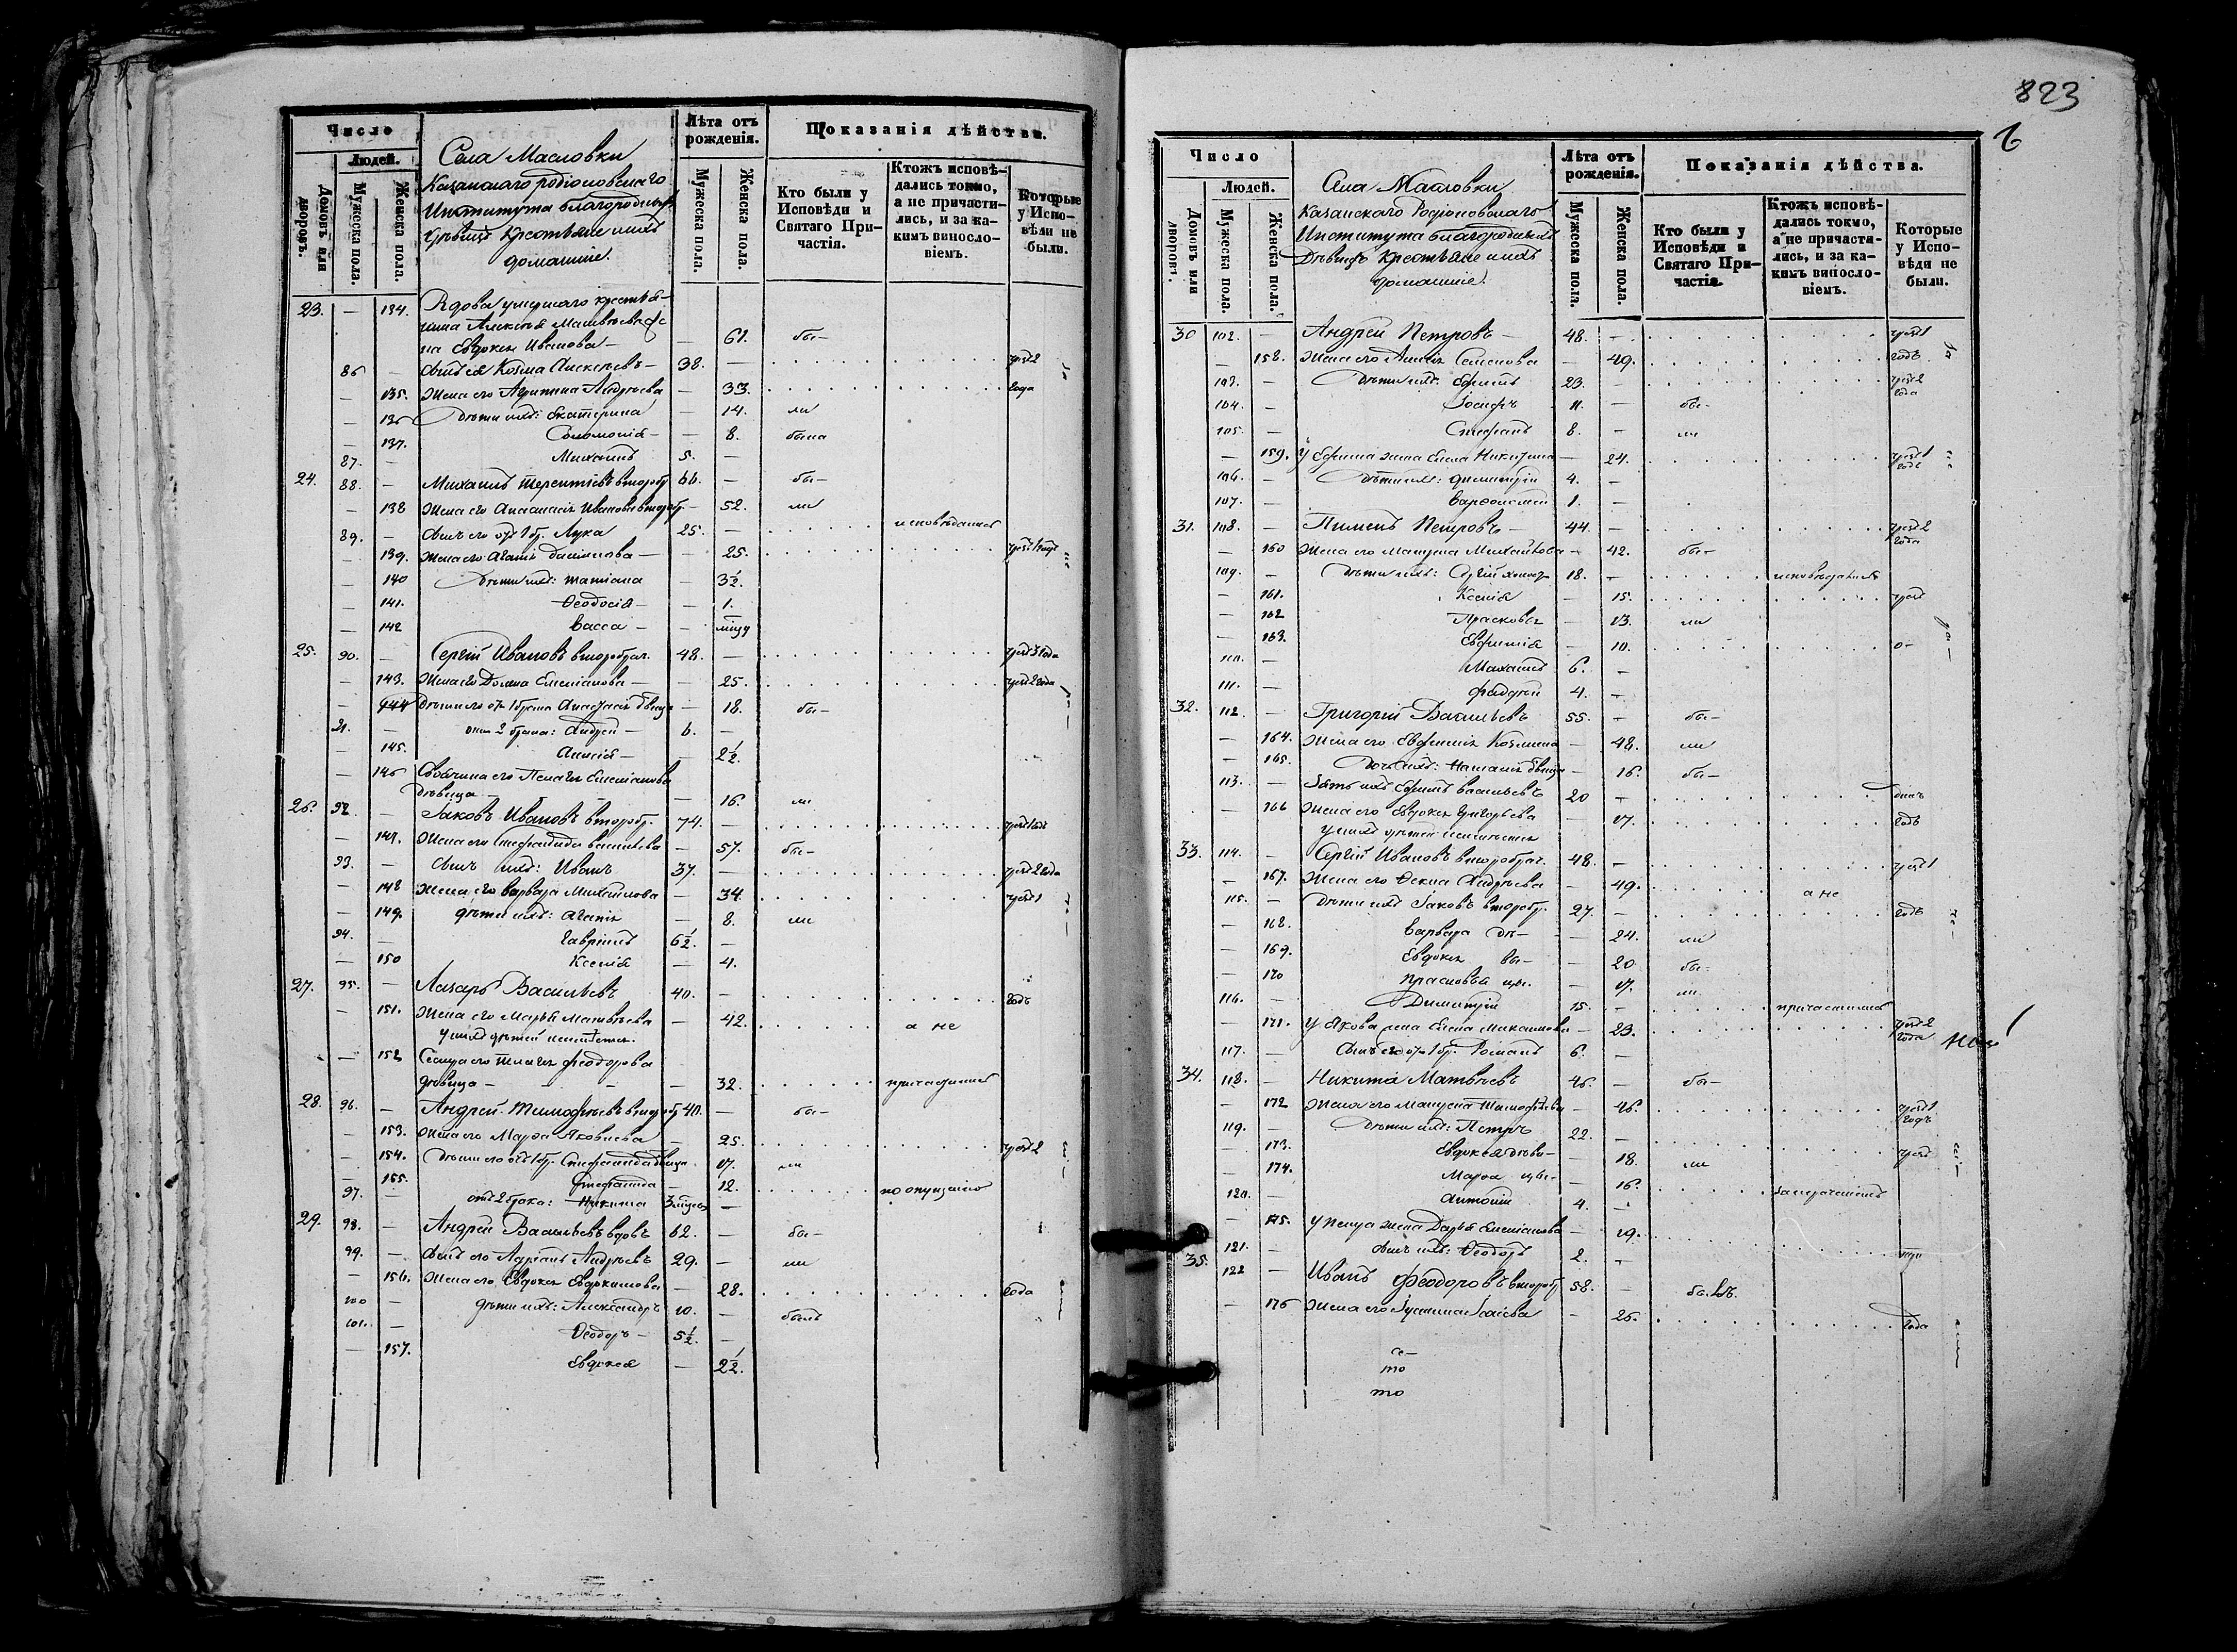 Число
Людей.
Домовъ или дворовъ.
Мужеска пола.
Женска пола.
Села Масловки
Казанскаго Родіоновскаго
Института благородныхъ
дѣвицъ крестьяне и ихъ
домашніе.
Лѣта отъ рожденія.
Мужеска пола.
Женска пола.
Показанія дѣйства.
Кто были у Исповѣди и Святаго Причастія.
Ктожъ исповѣдались токмо, а не причастились, и за какимъ винословіемъ.
Которые у Исповѣди не были.
23. — 134. Вдова умершаго крестья-
нина Алексѣя Матвѣева
на Евдокія Иванова — 61. бы-
86 — Сынъ ея Козма Алексѣевъ — 38. — чрезъ 2
— 135. Жена его Андреева — 33. года
— 136 Дѣти ихъ: Екатерина — 14. ли
— 137. Соломонія — 8. была
87. — Михаилъ 5. —
24. 88. — Михаилъ Терентіевъ второбр. 66. — бы-
— 138 Жена его Анастасія Иванова второбр. — 52. ли
89. — Сынъ его отъ 1 бр. Лука 25. — исповѣдались
— 139. Жена его Агапія — 25.
— 140 Дѣти ихъ: Татіана — 3½.
— 141. Ѳеодосія — 1.
— 142 Васса —
25. 90. — Сергій Ивановъ второбрач. 48. — чрезъ 3 года
— 143. Жена его Домна Емеліанова — 25. чрезъ 2 года
— 144 Дѣти его отъ 1 брака Анастасія дѣвица — 18. бы-
91. отъ 2 брака: Андрей — 6. —
— 145. Анисія — 2½.
— 146 Своячина его Пелагія Емеліанова
дѣвица — 16. ли
26. 92. — Іаковъ Ивановъ второбр. 74. — чрезъ 1 годъ
— 147. Жена его Степанида Васильева — 57. бы-
93. — Сынъ ихъ: Иванъ 37. — чрезъ 2 года
— 148 Жена его Варвара Михайлова — 34. чрезъ 1
— 149. дѣти ихъ: Агапія — 8. ли
94. — Гавріилъ 6½. —
— 150 Ксенія — 4.
27. 95. — Лазарь Васильевъ 40. — годъ
— 151. Жена его Марья Матвѣева — 42. а не
у нихъ дѣтей
— 152 Сестра его Пелагія Ѳеодорова
дѣвица — 32. причастились
28. 96. — Андрей Тимофѣевъ второбр. 40. — бы-
— 153. Жена его Марѳа Яковлева — 25. чрезъ 2
— 154. Дѣти его отъ 1 бр. Степанида дѣвица — 17. ли
— 155. Степанида — 12. по опущенію
97. — отъ 2 брака: Никита —
29. 98. — Андрей Васильевъ вдовъ 62. — бы-
99. — Сынъ его Адріанъ Андреевъ 29. — ли
— 156. Жена его Евдокія Евдокимова — 28. года
100 — дѣти ихъ: Александръ 10. — былъ
101. — Ѳеодоръ — 5½. —
— 157. Евдокія — 2½.
823
Число
Людей.
Домовъ или дворовъ.
Мужеска пола.
Женска пола.
Села Масловки
Казанскаго Родіоновскаго
Института благородныхъ
Дѣвицъ крестьяне и ихъ
домашніе.
Лѣта отъ рожденія.
Мужеска пола.
Женска пола.
Показанія дѣйства.
Кто были у Исповѣди и Святаго Причастія.
Ктожъ исповѣдались токмо, а не причастились, и за какимъ винословіемъ.
Которые у Исповѣди не были.
30 102. — Андрей Петровъ — 48. — чрезъ 1
— 158. Жена его Семенова — 49. годъ
103. — Дѣти ихъ: Ефимъ 23. — чрезъ 2 года
104. — Іосифъ 11. — бы-
105. — Степанъ 8. — ли
— 159. У Ефима жена Елена Никитина — 24. чрезъ 1 годъ
106. — Дѣти ихъ: Димитрій 4. —
107. — Варѳоломей 1. —
31. 108. — Пименъ Петровъ — 44. — чрезъ 2 года
— 160 Жена его Матрена Михайлова — 42. бы-
109. — Дѣти ихъ: Сергій холост. 18. — исповѣдались
— 161. Ксенія — 15. чрезъ
— 162 Прасковья — 13. ли
— 163. Евфимія — 10.
110. — Михаилъ 6. —
111. — Фадѣй 4. —
32. 112. — Григорій Васильевъ 55. — бы-
— 164. Жена его Евфимія Козмина — 48. ли
— 165. Дочь ихъ: Наталія дѣвица — 16. бы-
113. — Зять ихъ Ефимъ Васильевъ 20 — одинъ
— 166 Жена его Евдокія Григорьева — 17. годъ
у нихъ дѣтей
33. 114. — Сергій Ивановъ второбрач. 48. — чрезъ 1
— 167. Жена его Ѳекла Андреева — 49. а не
115. — Дѣти ихъ Іаковъ второбр. 27. — годъ
— 168. Варвара дѣ- — 24. ли
— 169. Евдокія ви- — 20 бы-
— 170 Прасковья цы. — 17. ли
116. — Димитрій 15. — причастились
— 171. У Якова жена Елена — 23. чрезъ 2 года
117. — Сынъ его отъ 1 бр. Романъ 6. —
34. 118. — Никита Матвѣевъ 46. — бы-
— 172 Жена его Матрена Тимофѣева — 46. чрезъ 1 годъ
119. — Дѣти ихъ: Петръ 22. —
— 173. Евдокія дѣви- — 18. ли чрезъ
— 174. Марѳа цы- — 16. запрещеніемъ
120. — Антоній 4. —
— 175. У Петра жена Дарья Емеліанова — 19.
121. — Сынъ ихъ: Ѳеодоръ 2. — три
35. 122 — Иванъ Ѳеодоровъ второбр. 58. —
— 176 Жена его Іустина Исаіева — 26. года
се-
то
то